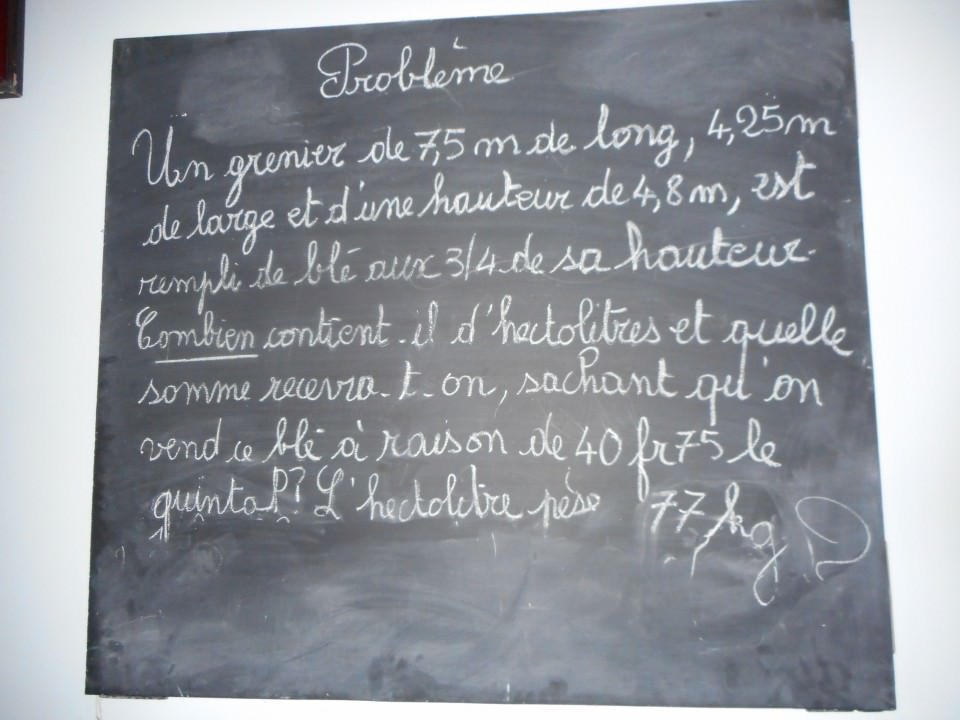 Problème
Un grenier de 7,5 m de long, 4,25 m
de large et d'une hauteur de 4,8 m, est
rempli de blé aux 3/4 de sa hauteur.
Combien contient-il d'hectolitres et quelle
somme recevra-t-on, sachant qu'on
vend ce blé à raison de 40 fr 75 le
quintal? L'hectolitre pèse 77 kg